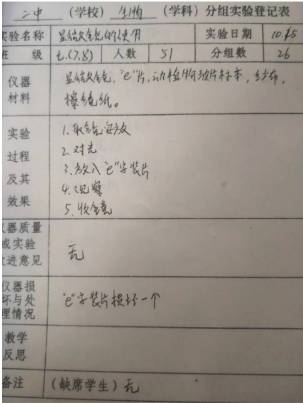 二中 (学校) 生物 (学科) 分组实验登记表
实验名称 显微镜的使用 实验日期 10.15
班 级 七.(7,8) 人数 51 分组数 26
仪器 显微镜,"e"片,动植物玻片标本,纱布,
材料 擦镜纸。
实验 1.取镜安放
过程 2.对光
及其 3.放入"e"字装片
效果 4.观察
5.收镜
仪器质量
或实验 无
改进意见
仪器损
坏与处 "e"字装片损坏一个
理情况
教学
反思
备注 (缺席学生) 无